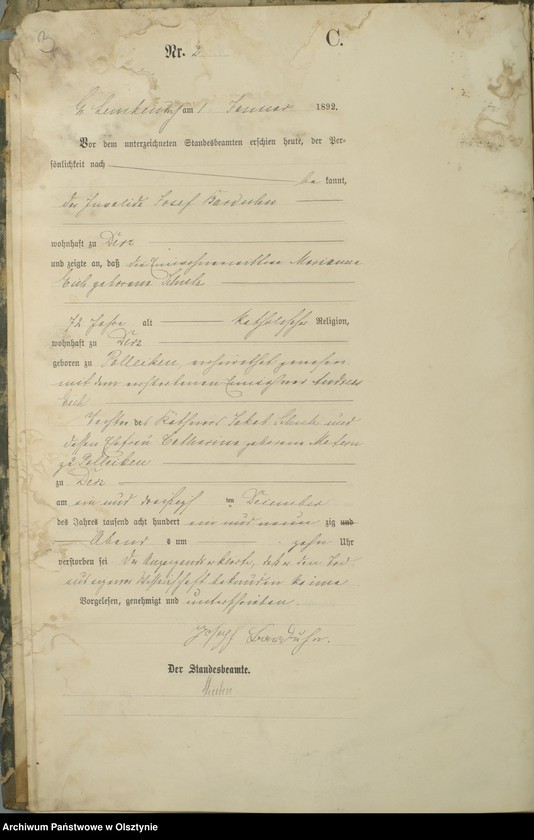 3
C.
Nr. 2
Gr. Lemkendorf am 1 Januar 1892.
Vor dem unterzeichneten Standesbeamten erschien heute, der Per-
sönlichkeit nach
be kannt,
der Invalide Josef Barduhn
wohnhaft zu Derz
und zeigte an, daß die Einwohnerwittwe Marianna
geborene
72 Jahre alt katholischer Religion,
wohnhaft zu Derz
geboren zu Polleiken, verheirathet gewesen
mit dem verstorbenen Einwohner Andreas
Tochter des Käthners Jakob und
dessen Ehefrau Catharina geborene Matern
zu Polleiken
zu Derz
am ein und dreißigsten December
des Jahres tausend acht hundert ein und neun zig und
Abend s um zehn Uhr
verstorben sei Der Anzeigende erklärte, daß er den Tod
aus eigener Wissenschaft bekunden könne.
Vorgelesen, genehmigt und unterschrieben.
Joseph Barduhn.
Der Standesbeamte.
Archiwum Państwowe w Olsztynie